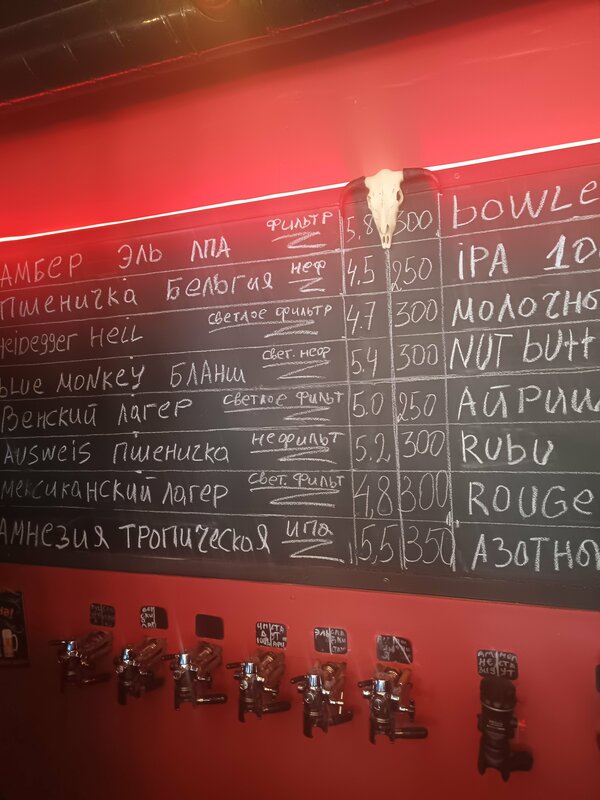 АМБЕР ЭЛЬ ЛПА ФИЛЬТР 5.8 300 BOWLE
ПШЕНИЧКА БЕЛЬГИЯ НЕФ 4.5 250 IPA 10
HEIDEGGER HELL СВЕТЛОЕ ФИЛЬТР 4.7 300 МОЛОЧНО
BLUE MONKEY БЛАНШ СВЕТ. НЕФ 5.4 300 NUT BUTT
ВЕНСКИЙ ЛАГЕР СВЕТЛОЕ ФИЛЬТ 5.0 250 АЙРИШ
AUSWEIS ПШЕНИЧКА НЕФИЛЬТ 5.2 300 RUBU
МЕКСИКАНСКИЙ ЛАГЕР СВЕТ. ФИЛЬТ 4,8 300 ROUGE
АМНЕЗИЯ ТРОПИЧЕСКАЯ ИПА 5,5 350 АЗОТНО